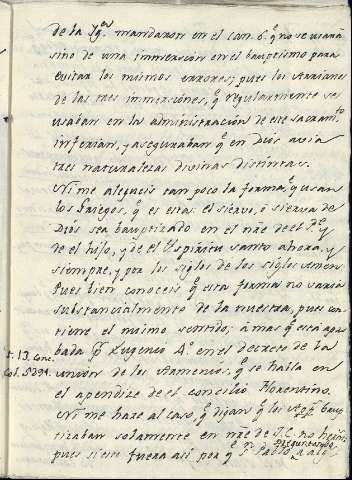 de la Ig.ª mandaron en el can. 6º q̃ no se usara
sino de una immersion en el bauptismo para
evitar los mismos errores; pues los Arrianos
de las tres immersiónes, q̃ regularmente se
usaban en la administración de este sacram.to
inferian, y aseguraban q̃ en Diòs avia
tres naturalezas divinas distintas.
Ni me alegueis tan poco la forma, q̃ usan
los Griegos, q̃ es esta: el siervo, ò sierva de
Diòs sea bauptizado en el nr̃e de el P.e y
de el hijo, y de el Espiritu santo ahora, y
siempre, y por los siglos de los siglos Amen.
Pues bien conoceis q̃ esta forma no varia
substancialmente de la nuestra, pues con-
tiene el mismo sentido; à mas q̃ està apro-
bada p.r Eugenio 4º en el decreto de la
t. 13. Conc. Col. 5391. union de los Armenios, q̃ se halla en
el apendize de el concilio Florentino.
Ni me haze al caso, q̃ digan q̃ los App.es baup-
tizaban solamente en nr̃e de J.C.
pues si este fuera asi por q̃ S. Pablo preguntando à alg.